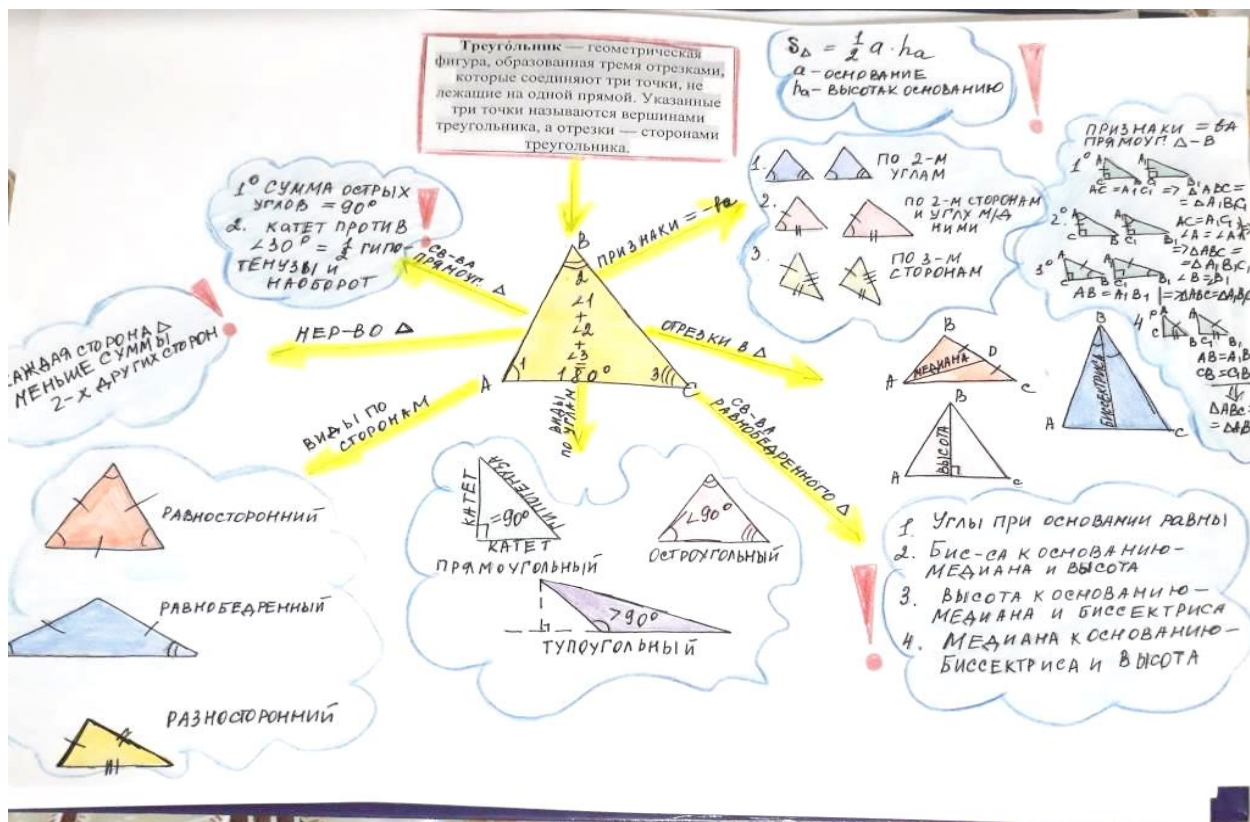 Треуго́льник — геометрическая
фигура, образованная тремя отрезками,
которые соединяют три точки, не
лежащие на одной прямой. Указанные
три точки называются вершинами
треугольника, а отрезки — сторонами
треугольника.
S△ = 1/2 a · ha
a - ОСНОВАНИЕ
ha - ВЫСОТА К ОСНОВАНИЮ
1° СУММА ОСТРЫХ
УГЛОВ = 90°
2. КАТЕТ ПРОТИВ
∠30° = 1/2 ГИПО-
ТЕНУЗЫ И
НАОБОРОТ
СВ-ВА
ПРЯМОУГ. △
ПРИЗНАКИ = -ва
1. ПО 2-М
УГЛАМ
2. ПО 2-М СТОРОНАМ
И УГЛУ М/Д
НИМИ
3. ПО 3-М
СТОРОНАМ
ПРИЗНАКИ = ВА
ПРЯМОУГ. △-В
1° A A1
C B C1 B1
AC = A1C1 => △ABC =
= △A1B1C1
2° A A1
C B C1 B1
AC = A1C1
∠A = ∠A1
=> △ABC =
= △A1B1C1
3° A A1
C B C1 B1
∠B = B1
AB = A1B1 | => △ABC = △A1B
4° A A1
C B C1 B1
AB = A1B
CB = C1B
⇓
△ABC =
= △AB
КАЖДАЯ СТОРОНА △
МЕНЬШЕ СУММЫ
2-Х ДРУГИХ СТОРОН
НЕР-ВО △
B
2
∠1
+
∠2
+
∠3
=
180°
A 1
3 C
ОТРЕЗКИ В △
B
МЕДИАНА
D
A C
B
БИССЕКТРИСА
A C
B
ВЫСОТА
A C
ВИДЫ ПО
СТОРОНАМ
РАВНОСТОРОННИЙ
РАВНОБЕДРЕННЫЙ
РАЗНОСТОРОННИЙ
ВИДЫ
ПО УГЛАМ
КАТЕТ
ГИПОТЕНУЗА
=90°
КАТЕТ
ПРЯМОУГОЛЬНЫЙ
<90°
ОСТРОУГОЛЬНЫЙ
>90°
ТУПОУГОЛЬНЫЙ
СВ-ВА
РАВНОБЕДРЕННОГО △
1. УГЛЫ ПРИ ОСНОВАНИИ РАВНЫ
2. БИС-СА К ОСНОВАНИЮ-
МЕДИАНА И ВЫСОТА
3. ВЫСОТА К ОСНОВАНИЮ-
МЕДИАНА И БИССЕКТРИСА
4. МЕДИАНА К ОСНОВАНИЮ-
БИССЕКТРИСА И ВЫСОТА